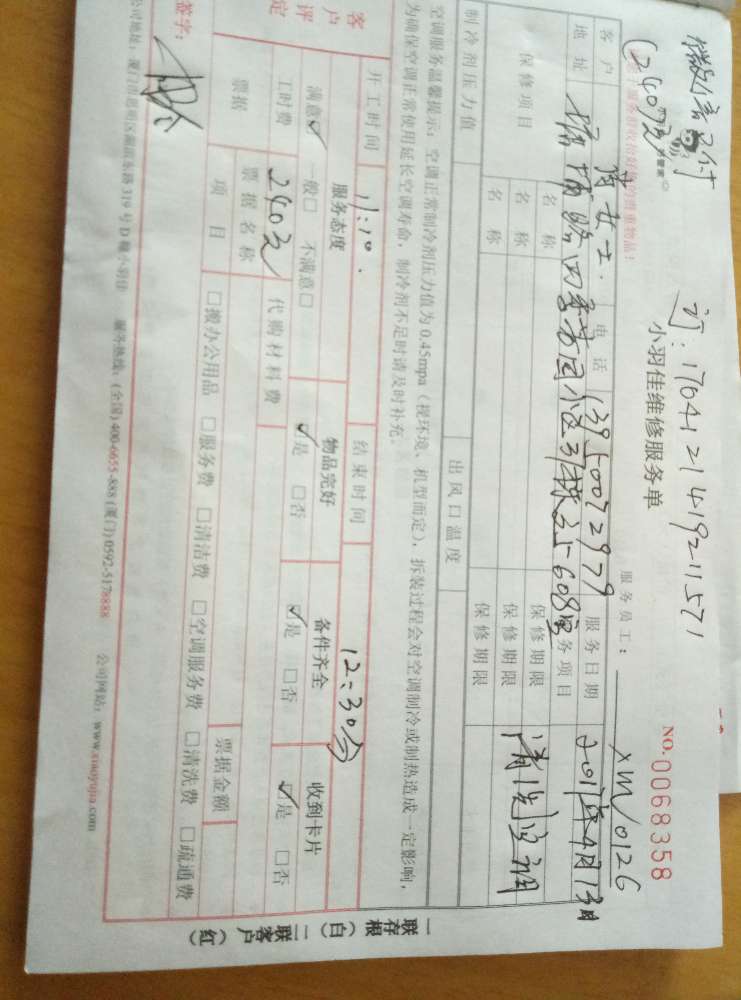 微信已付
(240元)
订:1704121419211571
小羽佳维修服务单
NO.0068358
服务员工: XM/0126
客户 女士. 电话 13950072979 服务日期 2017年4月13日
地址 四季花园小区31栋之 608室 服务项目 清洗空调
保修项目 名称 保修期限
名称 保修期限
名称 保修期限
制冷剂压力值 出风口温度
空调服务温馨提示:空调正常制冷剂压力值为0.45mpa(视环境、机型而定),拆装过程会对空调制冷或制热造成一定影响,
为确保空调正常使用延长空调寿命,制冷剂不足时请及时补充。
开工时间 11:10. 结束时间 12:30分
客户评定 服务态度 物品完好 备件齐全 收到卡片
满意☑ 一般□ 不满意□ ☑是 □否 ☑是 □否 ☑是 □否
工时费 240元 代购材料费
票据 票据名称 票据金额
项目 □搬办公用品 □服务费 □清洁费 □空调服务费 □清洗费 □疏通费
签字:
公司地址:厦门市思明区湖滨东路319号D幢小羽佳 服务热线:(全国)400-6655-888 (厦门)0592-5178888 公司网站:www.xiaoyujia.com
一联存根(白) 二联客户(红)